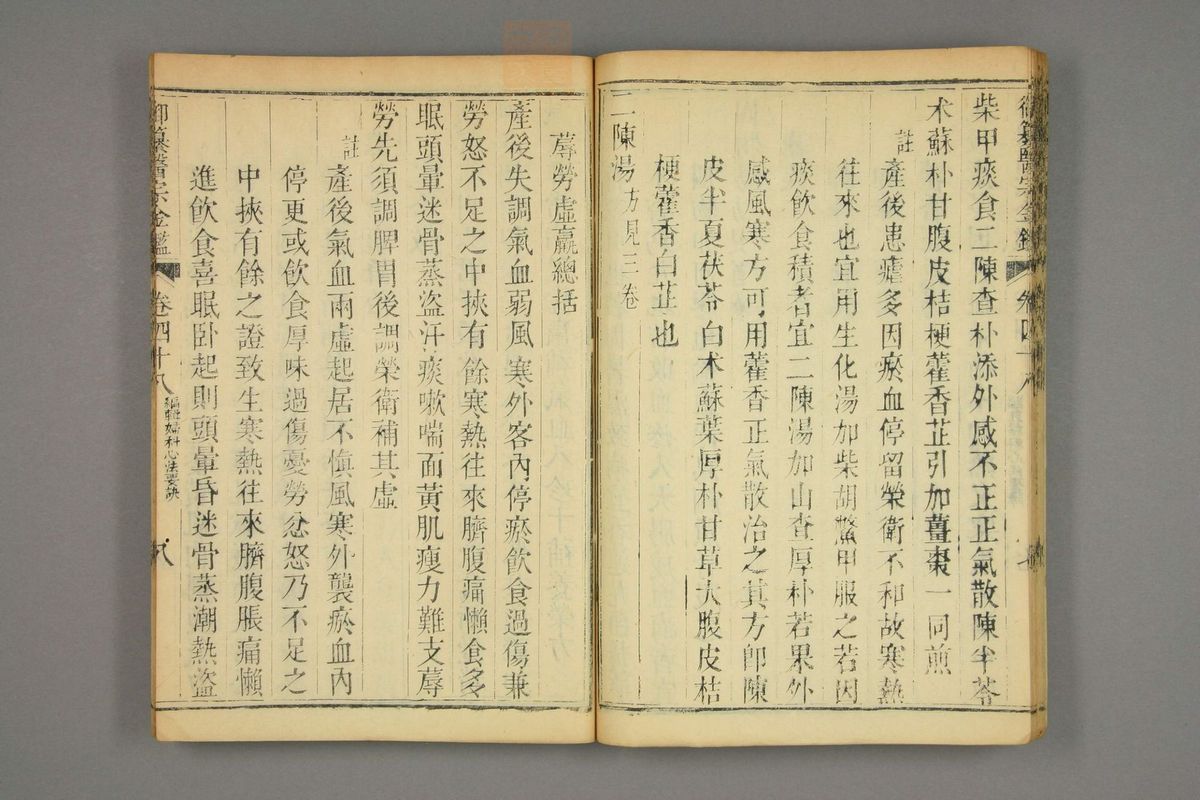 御纂醫宗金鑑 卷四十八
柴甲痰食二陳查朴添外感不正正氣散陳半苓
术蘇朴甘腹皮桔梗藿香芷引加薑棗一同煎
註
產後患瘧多因瘀血停留榮衛不和故寒熱
往來也宜用生化湯加柴胡鱉甲服之若因
痰飲食積者宜二陳湯加山查厚朴若果外
感風寒方可用藿香正氣散治之其方即陳
皮半夏茯苓白术蘇葉厚朴甘草大腹皮桔
梗藿香白芷也
二陳湯 方見三卷
蓐勞虛羸總括
產後失調氣血弱風寒外客內停瘀飲食過傷兼
勞怒不足之中挾有餘寒熱往來臍腹痛懶食多
眠頭暈迷骨蒸盜汗痰嗽喘面黃肌瘦力難支蓐
勞先須調脾胃後調榮衛補其虛
註
產後氣血兩虛起居不慎風寒外襲瘀血內
停更或飲食厚味過傷憂勞忿怒乃不足之
中挾有餘之證致生寒熱往來臍腹脹痛懶
進飲食喜眠臥起則頭暈昏迷骨蒸潮熱盜
御纂醫宗金鑑 卷四十八 編輯婦科心法要訣 八